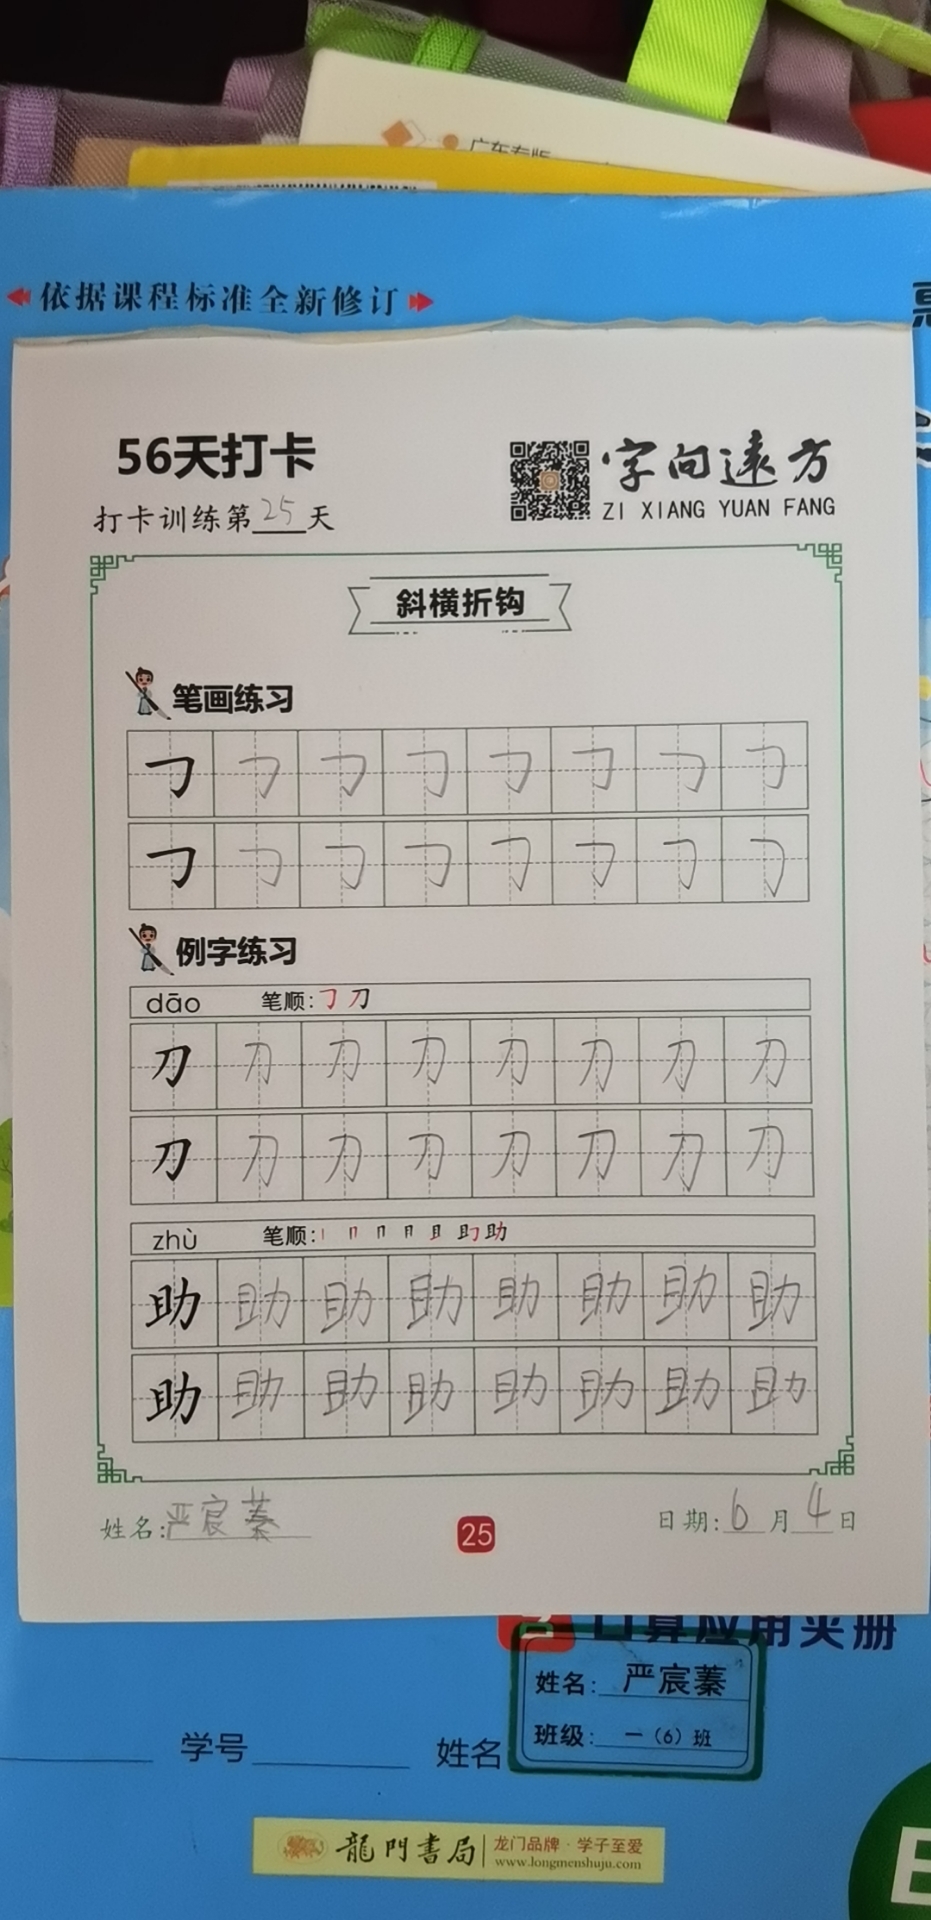 广东专版
依据课程标准全新修订
56天打卡
打卡训练第25天
字向远方
ZI XIANG YUAN FANG
斜横折钩
笔画练习
㇆ ㇆ ㇆ ㇆ ㇆ ㇆ ㇆ ㇆
㇆ ㇆ ㇆ ㇆ ㇆ ㇆ ㇆ ㇆
例字练习
dāo 笔顺:㇆ 刀
刀 刀 刀 刀 刀 刀 刀 刀
刀 刀 刀 刀 刀 刀 刀 刀
zhù 笔顺:丨 冂 冂 月 且 助
助 助 助 助 助 助 助 助
助 助 助 助 助 助 助 助
姓名:严宸蓁
25
日期:6月4日
口算应用夹册
姓名:严宸蓁
班级:一（6）班
学号 姓名
龍門書局
龙门品牌·学子至爱
www.longmenshuju.com